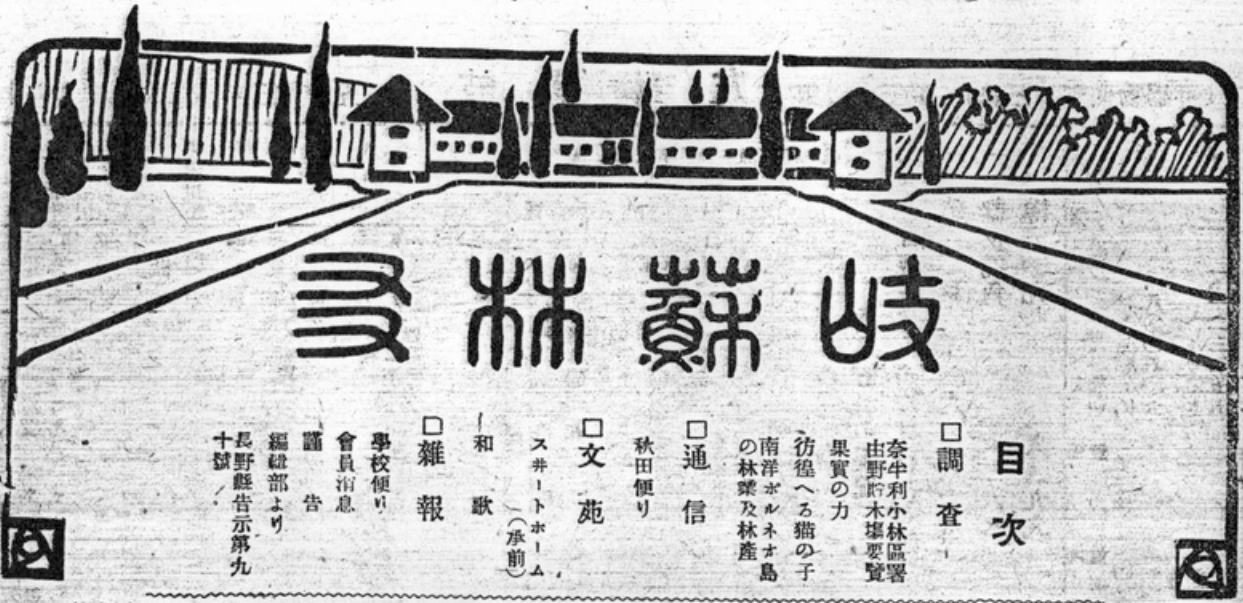 岐蘇林友
目次
□調査
奈半利小林區署
由野貯木場要覽
果實の力
彷徨へる猫の子
南洋ボルネオ島
の林業及林産
□通信
秋田便り
□文苑
スヰートホーム
(承前)
和歌
□雜報
學校便り
會員消息
謹告
編緝部より
長野縣告示第九
十號